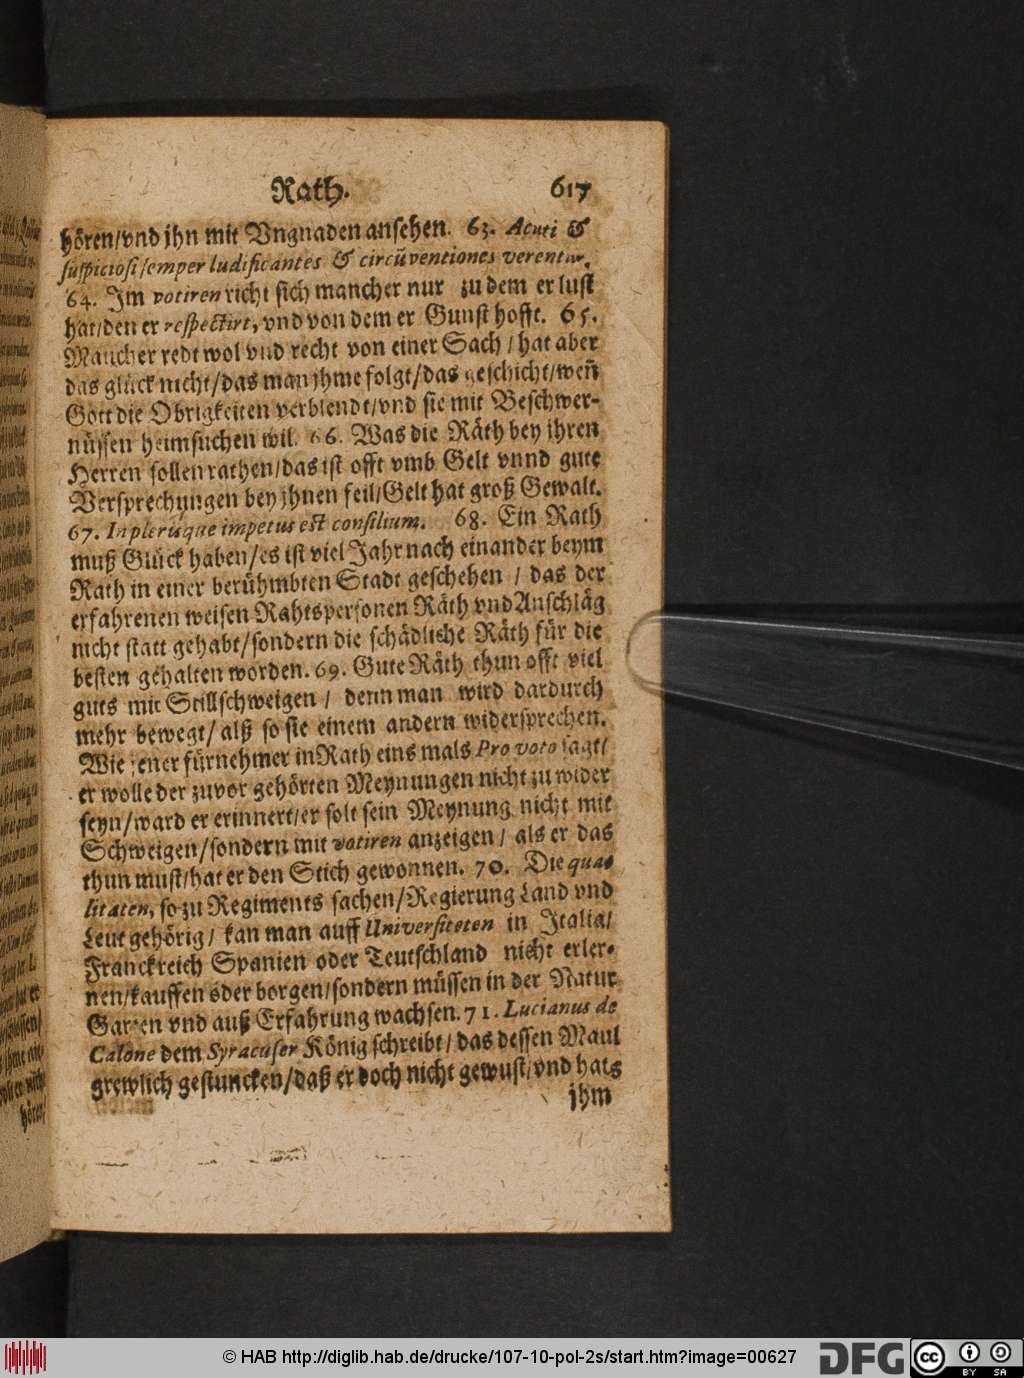 Rath. 617
hören/vnd jhn mit Vngnaden ansehen. 63. Acuti &
suspiciosi semper ludificantes & circũventiones verentur.
64. Im votiren richt sich mancher nur zu dem er lust
hat/den er respectirt, vnd von dem er Gunst hofft. 65.
Mancher redt wol vnd recht von einer Sach / hat aber
das glück nicht/das man jhme folgt/das geschicht/weñ
Gott die Obrigkeiten verblendt/vnd sie mit Beschwer-
nüssen heimsuchen wil. 66. Was die Räth bey jhren
Herren sollen rathen/das ist offt vmb Gelt vnnd gute
Versprechungen bey jhnen feil/Gelt hat groß Gewalt.
67. In plerisque impetus est consilium. 68. Ein Rath
muß Glück haben/es ist viel Jahr nach einander beym
Rath in einer berühmbten Stadt geschehen / das der
erfahrenen weisen Rahtspersonen Räth vnd Anschläg
nicht statt gehabt/sondern die schädliche Räth für die
besten gehalten worden. 69. Gute Räth thun offt viel
guts mit Stillschweigen / denn man wird dardurch
mehr bewegt/ alß so sie einem andern widersprechen.
Wie jener fürnehmer in Rath eins mals Pro voto sagt/
er wolle der zuvor gehörten Meynungen nicht zu wider
seyn/ward er erinnert/er solt sein Meynung nicht mit
Schweigen/sondern mit votiren anzeigen / als er das
thun must/hat er den Stich gewonnen. 70. Die qua-
litaten, so zu Regiments sachen/Regierung Land vnd
Leut gehörig/ kan man auff Universiteten in Italia/
Franckreich Spanien oder Teutschland nicht erler-
nen/kauffen oder borgen/sondern müssen in der Natur
Garten vnd auß Erfahrung wachsen. 71. Lucianus de
Calone dem Syracuser König schreibt / das dessen Maul
grewlich gestuncken/daß er doch nicht gewust/vnd hats
jhm
© HAB http://diglib.hab.de/drucke/107-10-pol-2s/start.htm?image=00627
DFG
cc
BY SA